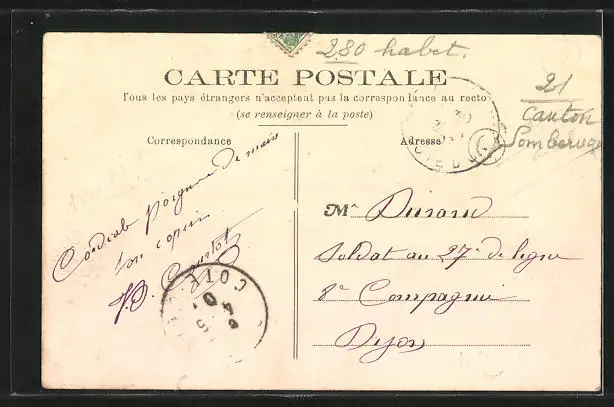 280 habet.
CARTE POSTALE
Tous les pays étrangers n'acceptent pas la correspondance au recto
(se renseigner à la poste)
21
Canton
Sombernon
Correspondance
Adresse
Cordiale poignée de main
ton copain
Mr Durand
Soldat au 27e de ligne
8e Compagnie
Dijon
COTE